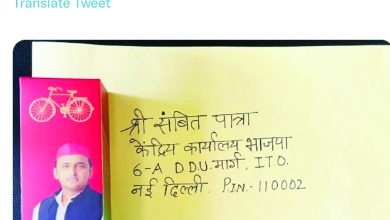 Translate Tweet
श्री संबित पात्रा
केंद्रिय कार्यालय भाजपा
6-A D.D.U. मार्ग, I.T.O.
नई दिल्ली. PIN.-110002